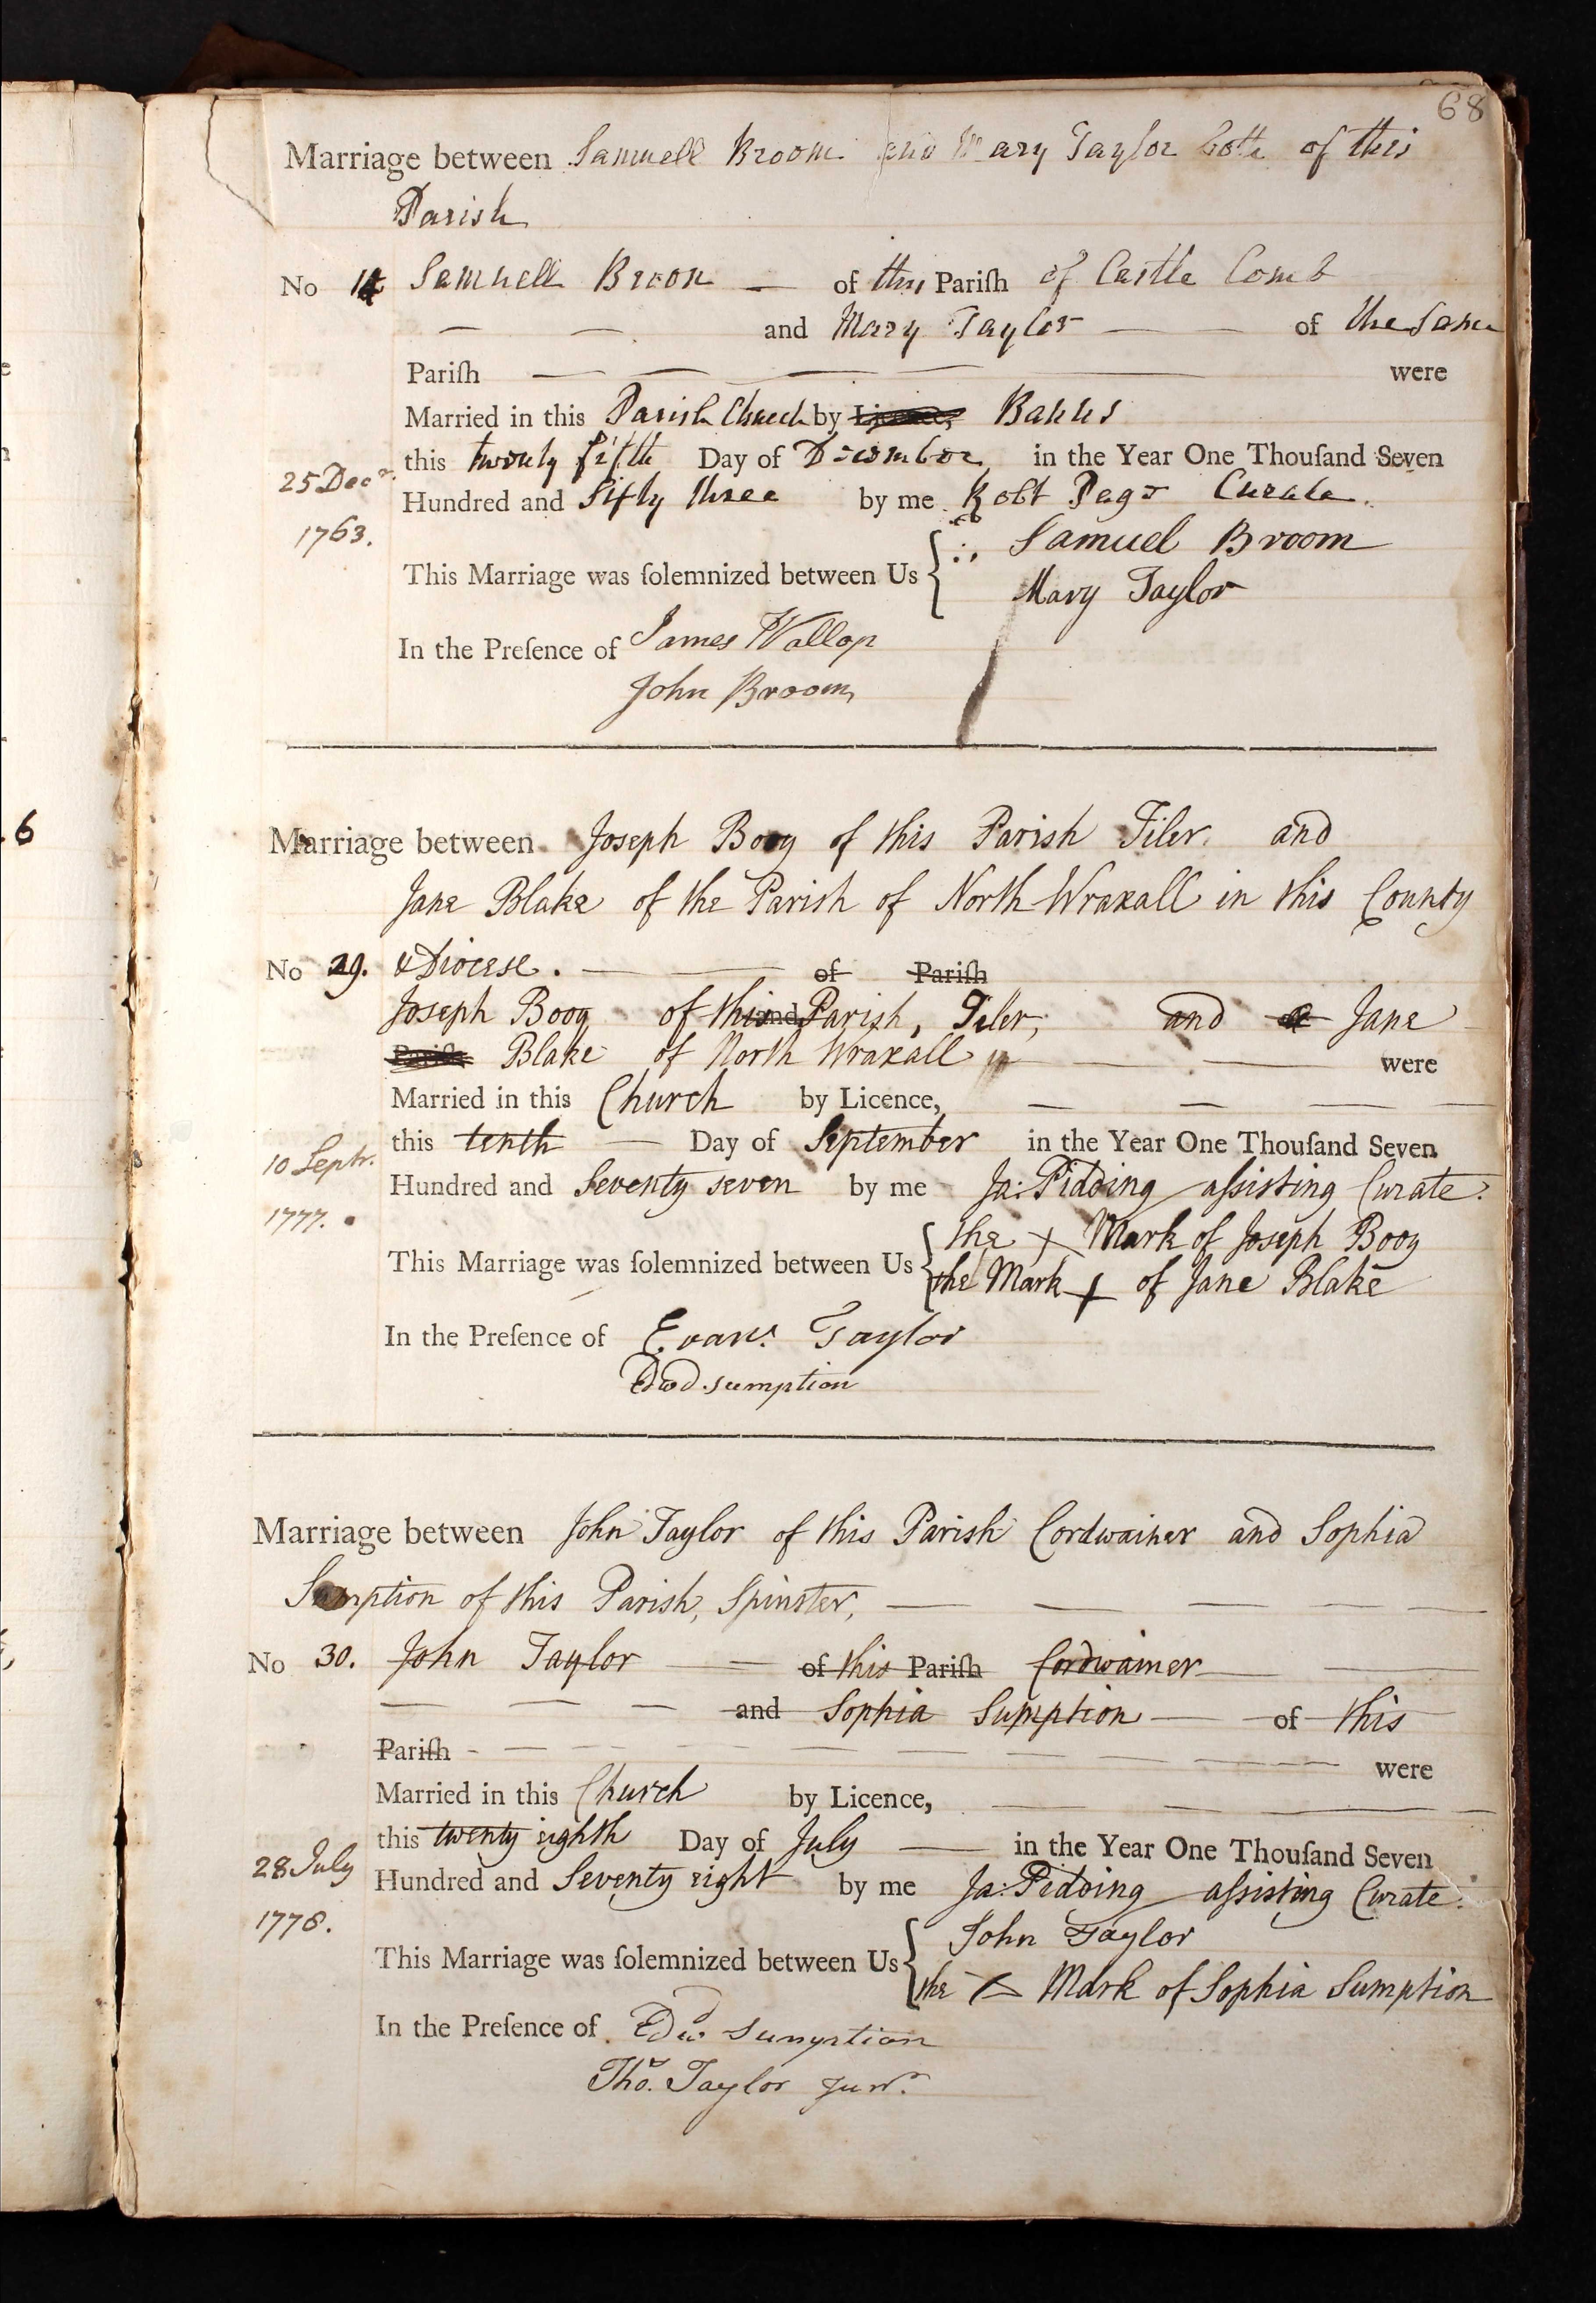 68
Marriage between Samuell Broom and Mary Taylor both of this
Parish
No 14 Samuell Broon — of this Pariſh of Castle Comb
— — and Mary Taylor — — of the Same
Pariſh — — — — — were
Married in this Parish Church by Licence, Banns
this twenty fifth Day of December in the Year One Thouſand Seven
25 Decr.
Hundred and Sixty three by me Robt Page Curate.
1763.
This Marriage was ſolemnized between Us { Samuel Broom
Mary Taylor
In the Preſence of James Wallop
John Broom
6
Marriage between Joseph Boog of this Parish Tiler. and
Jane Blake of the Parish of North Wraxall in this County
No 29. & Diocese. — — of Pariſh
Joseph Boog of this and Parish, Tiler, and Jane
Pariſh Blake of North Wraxall — — were
Married in this Church by Licence, — — — —
this tenth — Day of September in the Year One Thouſand Seven
10 Septr.
Hundred and Seventy seven by me Ja: Pidding assisting Curate.
1777.
This Marriage was ſolemnized between Us { the X Mark of Joseph Boog
the Mark X of Jane Blake
In the Preſence of Evans. Taylor
Edwd Sumption
Marriage between John Taylor of this Parish Cordwainer and Sophia
Sumption of this Parish, Spinster, — — — — —
No 30. John Taylor — — of this Pariſh Cordwainer — —
— — — and Sophia Sumption — of this
Pariſh - — — — — — — — were
Married in this Church by Licence, — — — —
this twenty eighth Day of July — in the Year One Thouſand Seven
28 July
Hundred and Seventy eight by me Ja: Pidding assisting Curate.
1778.
This Marriage was ſolemnized between Us { John Taylor
the X Mark of Sophia Sumption
In the Preſence of Edwd Sumption
Thos. Taylor Junr.